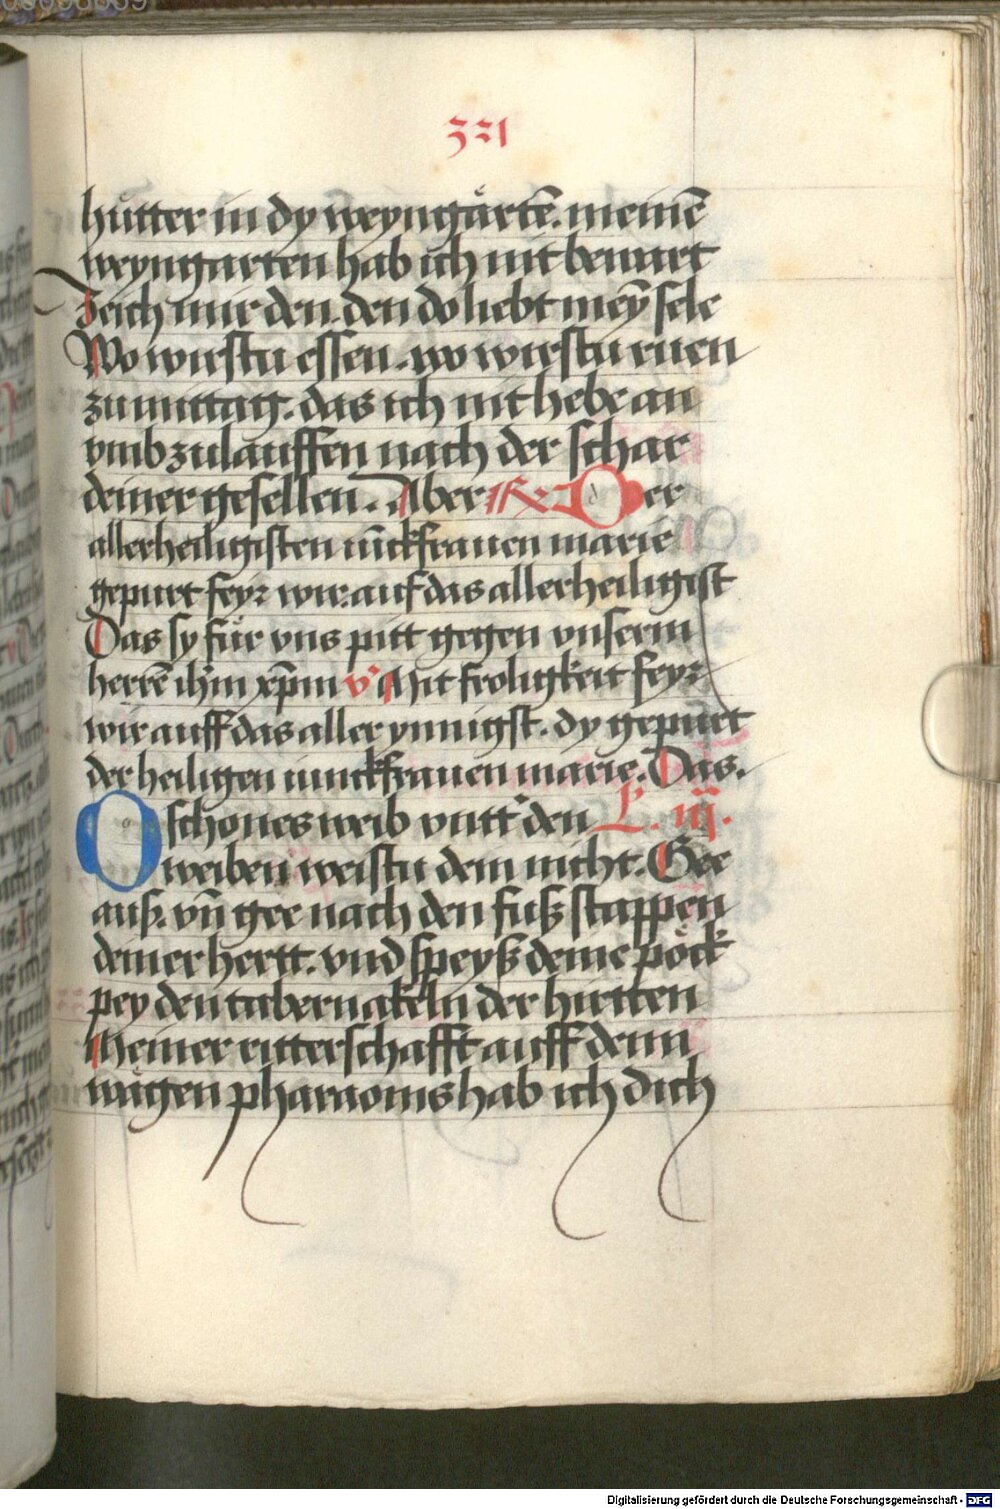 321
hütter in dy weyngärtē. meinē
weyngarten hab ich nit bewart
Zeich mir den. den do liebt mey̅ sele
Wo wirstu essen. wo wirstu ruen
zu mittag. das ich nit hebe an
vmbzulauffen nach der schar
deiner gesellen. Aber R: Der
allerheiligisten iūckfrauen marie
gepurt feyr wir auf das allerheiligist
Das sy für vns pitt gegen vnserm
herrē ih̅m xp̅m v̓ Mit froligkeit feyr
wir auff das aller ynnigst. dy gepurt
der heiligen iunckfrauen marie. Das.
O schones weib vntt̓ den L. iij.
weiben weistu dein nicht. Gee
auß. vn̄ gee nach den fußstappen
deiner hertt. vnd speyß deine pöck
pey den tabernakeln der hirtten
Meiner ritterschafft auff denn
wägen pharaonis hab ich dich
Digitalisierung gefördert durch die Deutsche Forschungsgemeinschaft - DFG